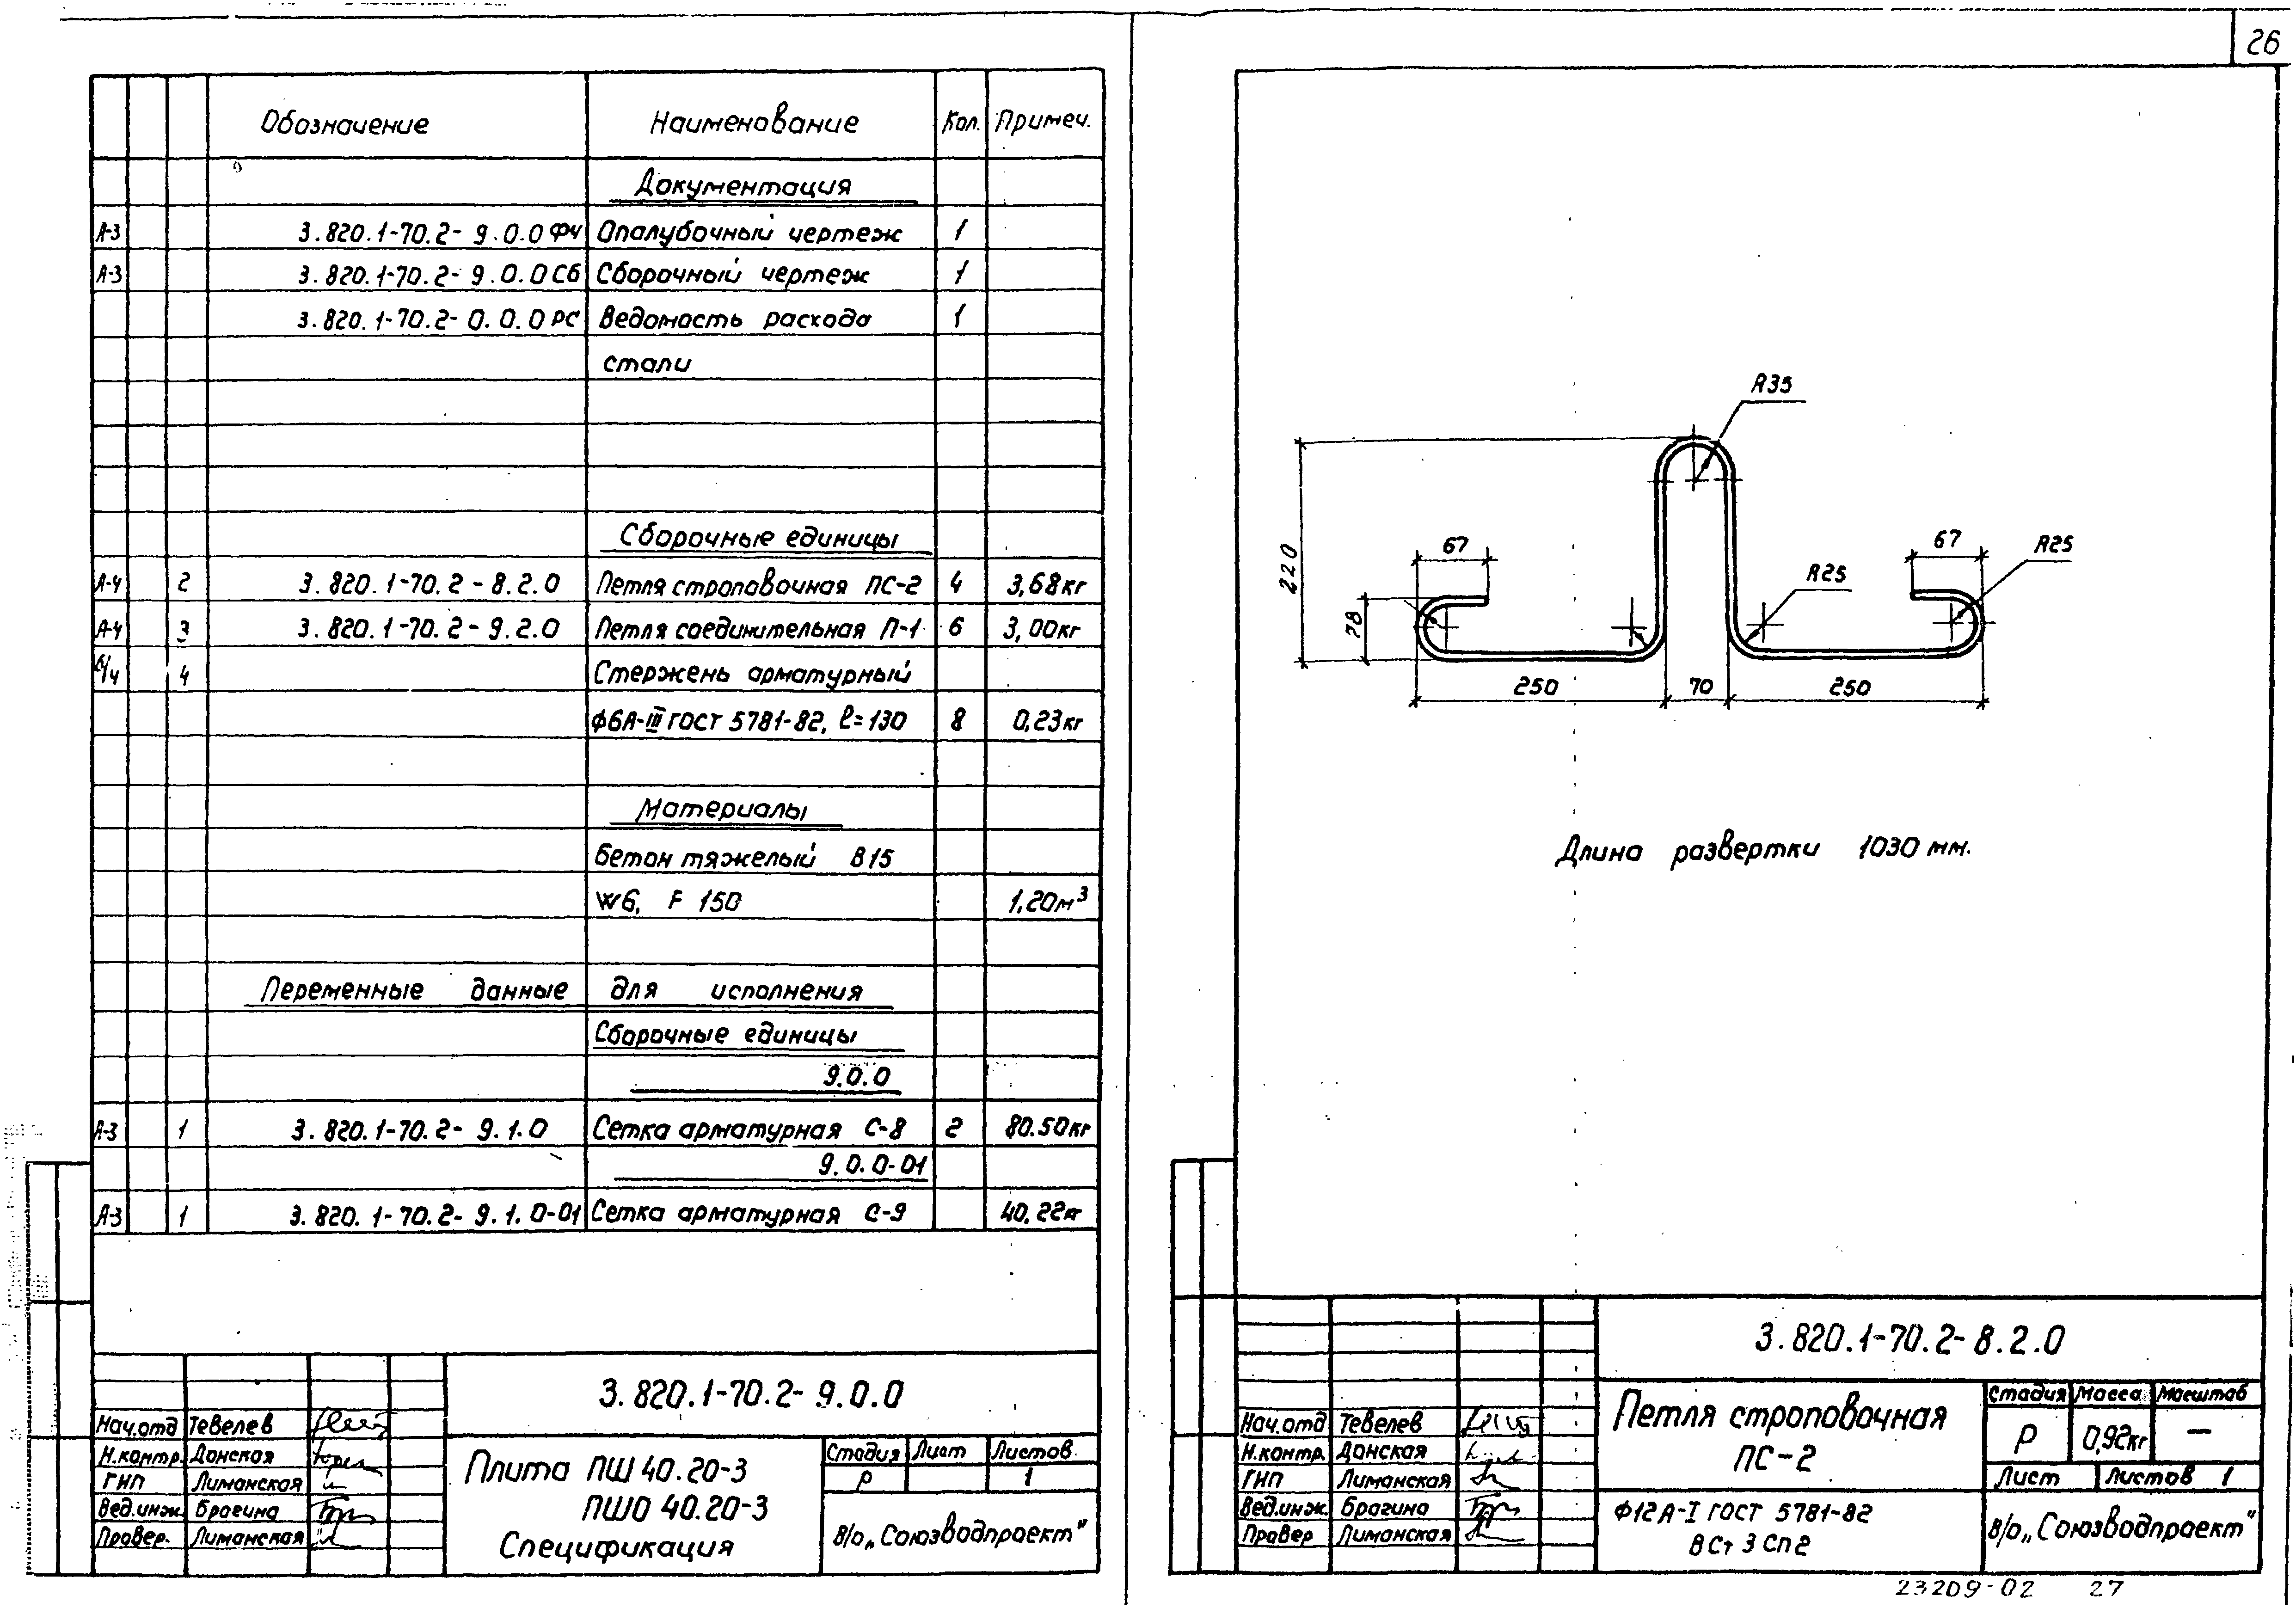 26
Обозначение Наименование Кол. Примеч.
Документация
А-3 3.820.1-70.2-9.0.0ФЧ Опалубочный чертеж 1
А-3 3.820.1-70.2-9.0.0СБ Сборочный чертеж 1
3.820.1-70.2-0.0.0РС Ведомость расхода 1
стали
Сборочные единицы
А-4 2 3.820.1-70.2-8.2.0 Петля строповочная ПС-2 4 3,68кг
А-4 3 3.820.1-70.2-9.2.0 Петля соединительная П-1 6 3,00кг
б/ч 4 Стержень арматурный
Ф6А-III ГОСТ 5781-82, ℓ=130 8 0,23кг
Материалы
Бетон тяжелый В15
W6, F 150 1,20м³
Переменные данные для исполнения
Сборочные единицы
9.0.0
А-3 1 3.820.1-70.2-9.1.0 Сетка арматурная С-8 2 80.50кг
9.0.0-01
А-3 1 3.820.1-70.2-9.1.0-01 Сетка арматурная С-9 40,22кг
3.820.1-70.2-9.0.0
Нач.отд Тевелев
Н.контр. Донская
ГИП Лиманская
Вед.инж. Брагина
Провер. Лиманская
Плита ПШ 40.20-3
ПШО 40.20-3
Спецификация
Стадия Лист Листов
Р 1
В/о „Союзводпроект"
R35
220
67
67
R25
R25
78
250 70 250
Длина развертки 1030 мм.
3.820.1-70.2-8.2.0
Нач.отд Тевелев
Н.контр. Донская
ГИП Лиманская
Вед.инж. Брагина
Провер Лиманская
Петля строповочная
ПС-2
Стадия Масса Масштаб
Р 0,92кг —
Лист Листов 1
Ф12А-I ГОСТ 5781-82
ВСт 3 Сп2
В/о „Союзводпроект"
23209-02 27